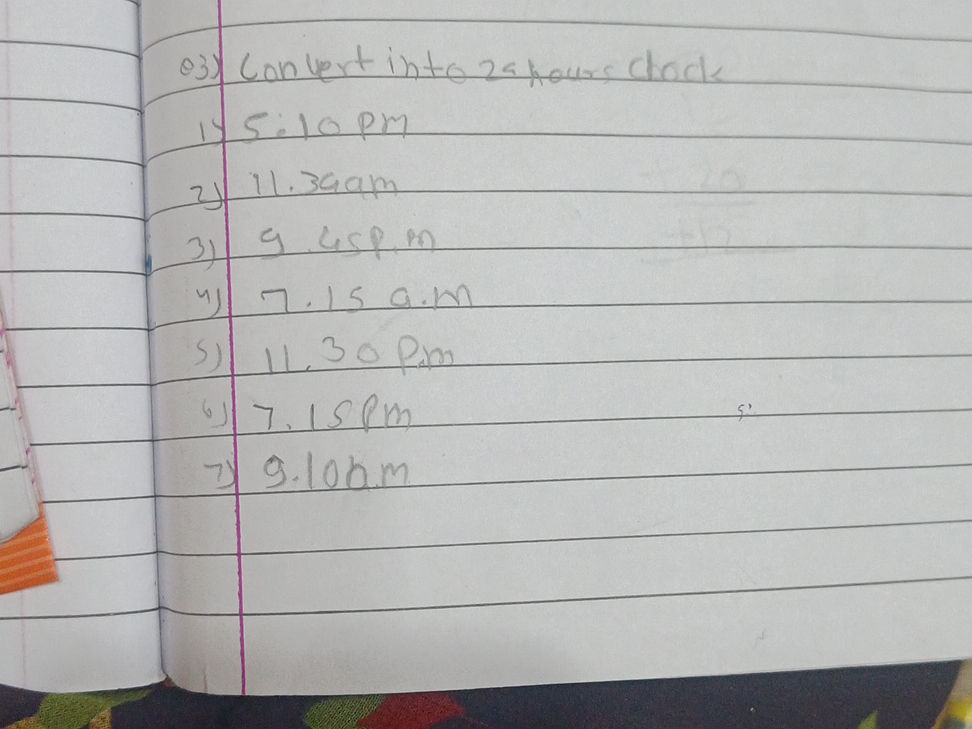 Q3) Convert into 24 hours clock
1) 5:10 pm
2) 11.34am
3) 9.45p.m
4) 7.15 a.m
5) 11.30 P.m
6) 7.15pm
7) 9.10a.m